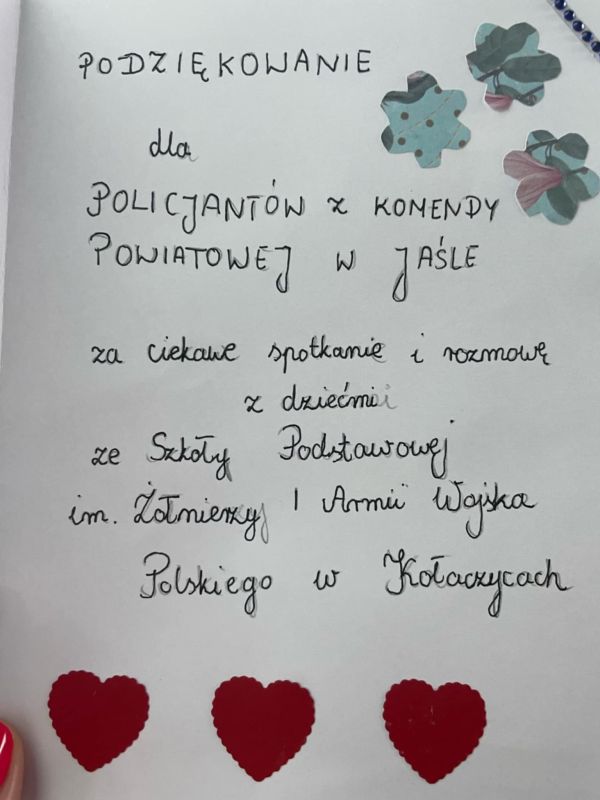 PODZIĘKOWANIE
dla
POLICJANTÓW z KOMENDY
POWIATOWEJ W JAŚLE
za ciekawe spotkanie i rozmowę
z dziećmi
ze Szkoły Podstawowej
im. Żołnierzy I Armii Wojska
Polskiego w Kołaczycach